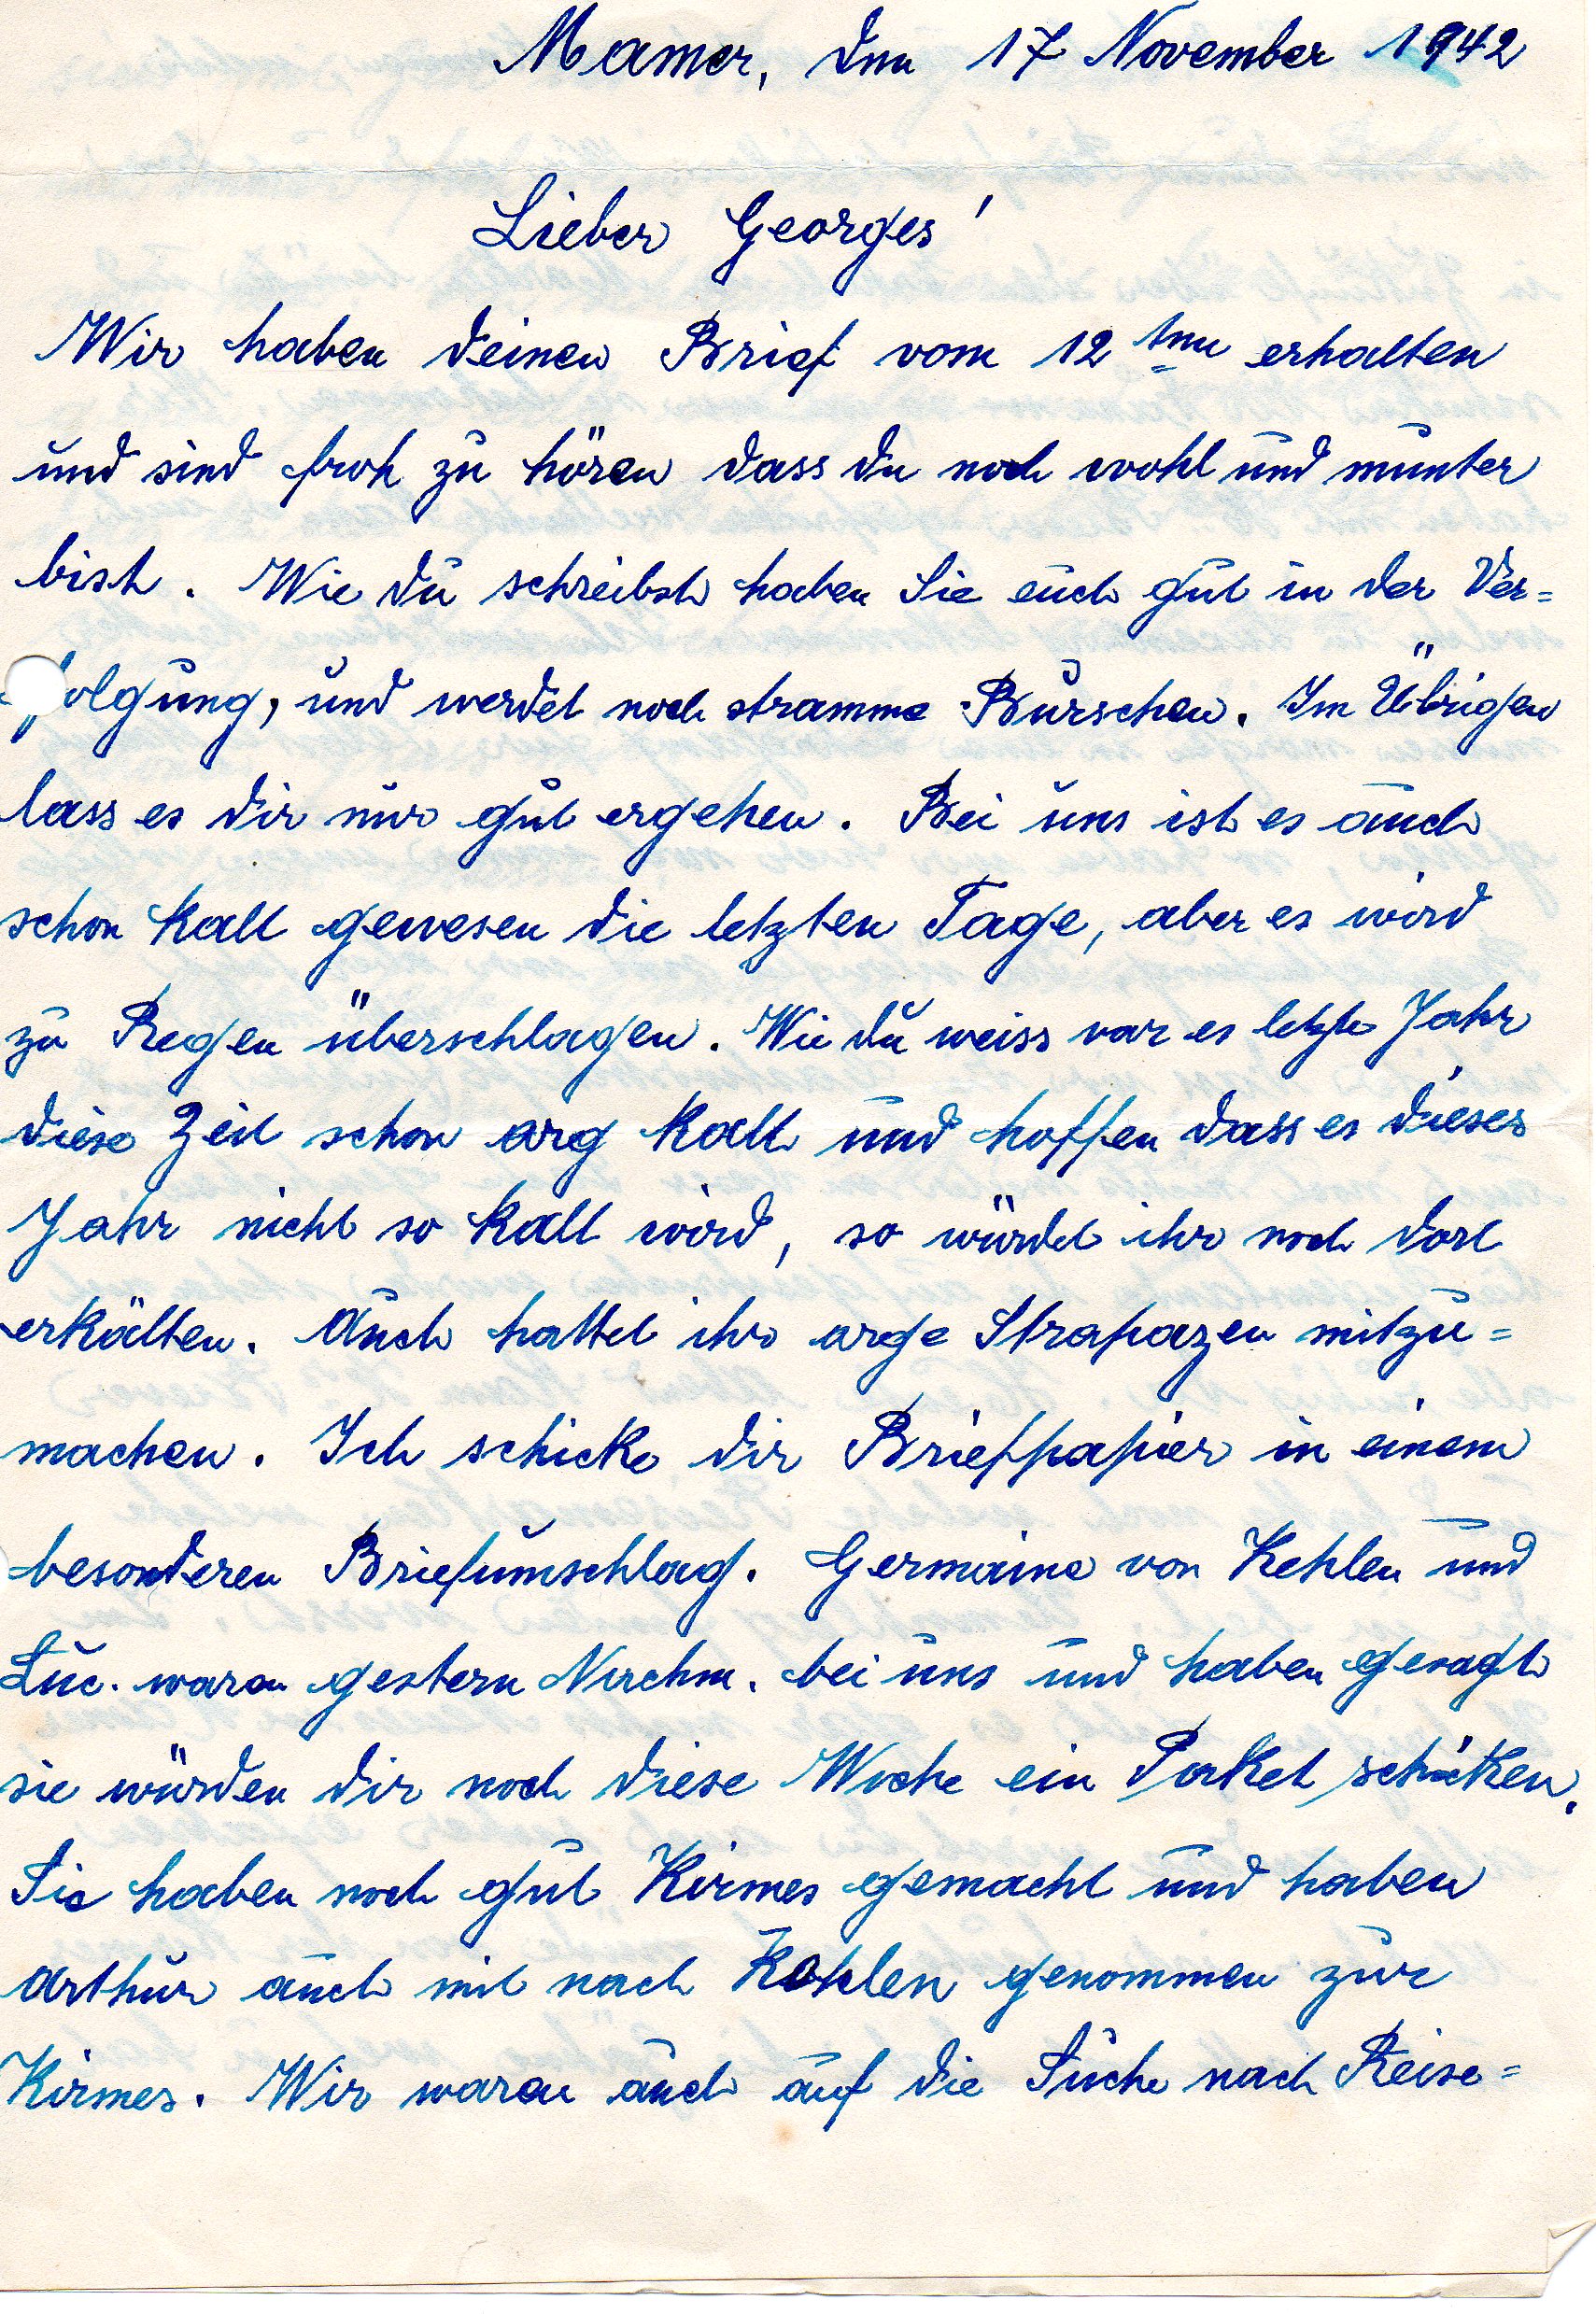 Mamer, den 17 November 1942
Lieber Georges!
Wir haben deinen Brief vom 12ten erhalten
und sind froh zu hören dass du noch wohl und munter
bist. Wie du schreibst haben Sie euch gut in der Ver=
folgung, und werdet noch stramme Burschen. Im Übrigen
lass es dir nur gut ergehen. Bei uns ist es auch
schon kalt gewesen die letzten Tage, aber es wird
zu Regen überschlagen. Wie du weiss var es letzte Jahr
diese Zeit schon arg kalt und hoffen dass es dieses
Jahr nicht so kalt wird, so würdet ihr noch dort
erkälten. Auch hattet ihr arge Strapazen mitzu=
machen. Ich schicke dir Briefpapier in einem
besonderen Briefumschlag. Germaine von Kehlen und
Luc. waren gestern Nachm. bei uns und haben gesagt
sie würden dir noch diese Woche ein Paket schicken.
Sie haben noch gut Kirmes gemacht und haben
Arthur auch mit nach Kehlen genommen zur
Kirmes. Wir waren auch auf die Suche nach Reise=